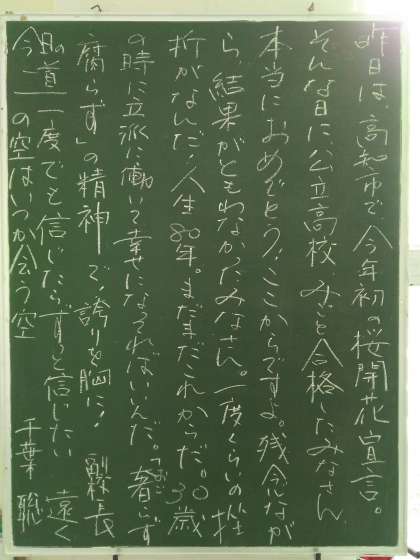 昨日は、高知市で今年初の桜開花宣言。
そんな日に、公立高校、みごと合格したみなさん
本当におめでとう！ここからですよ。残念なが
ら、結果がともわなかったみなさん。一度くらいの挫
折がなんだ！人生80年。まだまだこれからだ。30歳
の時に立派に働いて幸せになってればいいんだ。「奢らず
おご
腐らず」の精神で、誇りを胸に！ 副校長
この道一度でも信じたらずっと信じたい 遠く
今の空はいつか会う空 千葉 聡